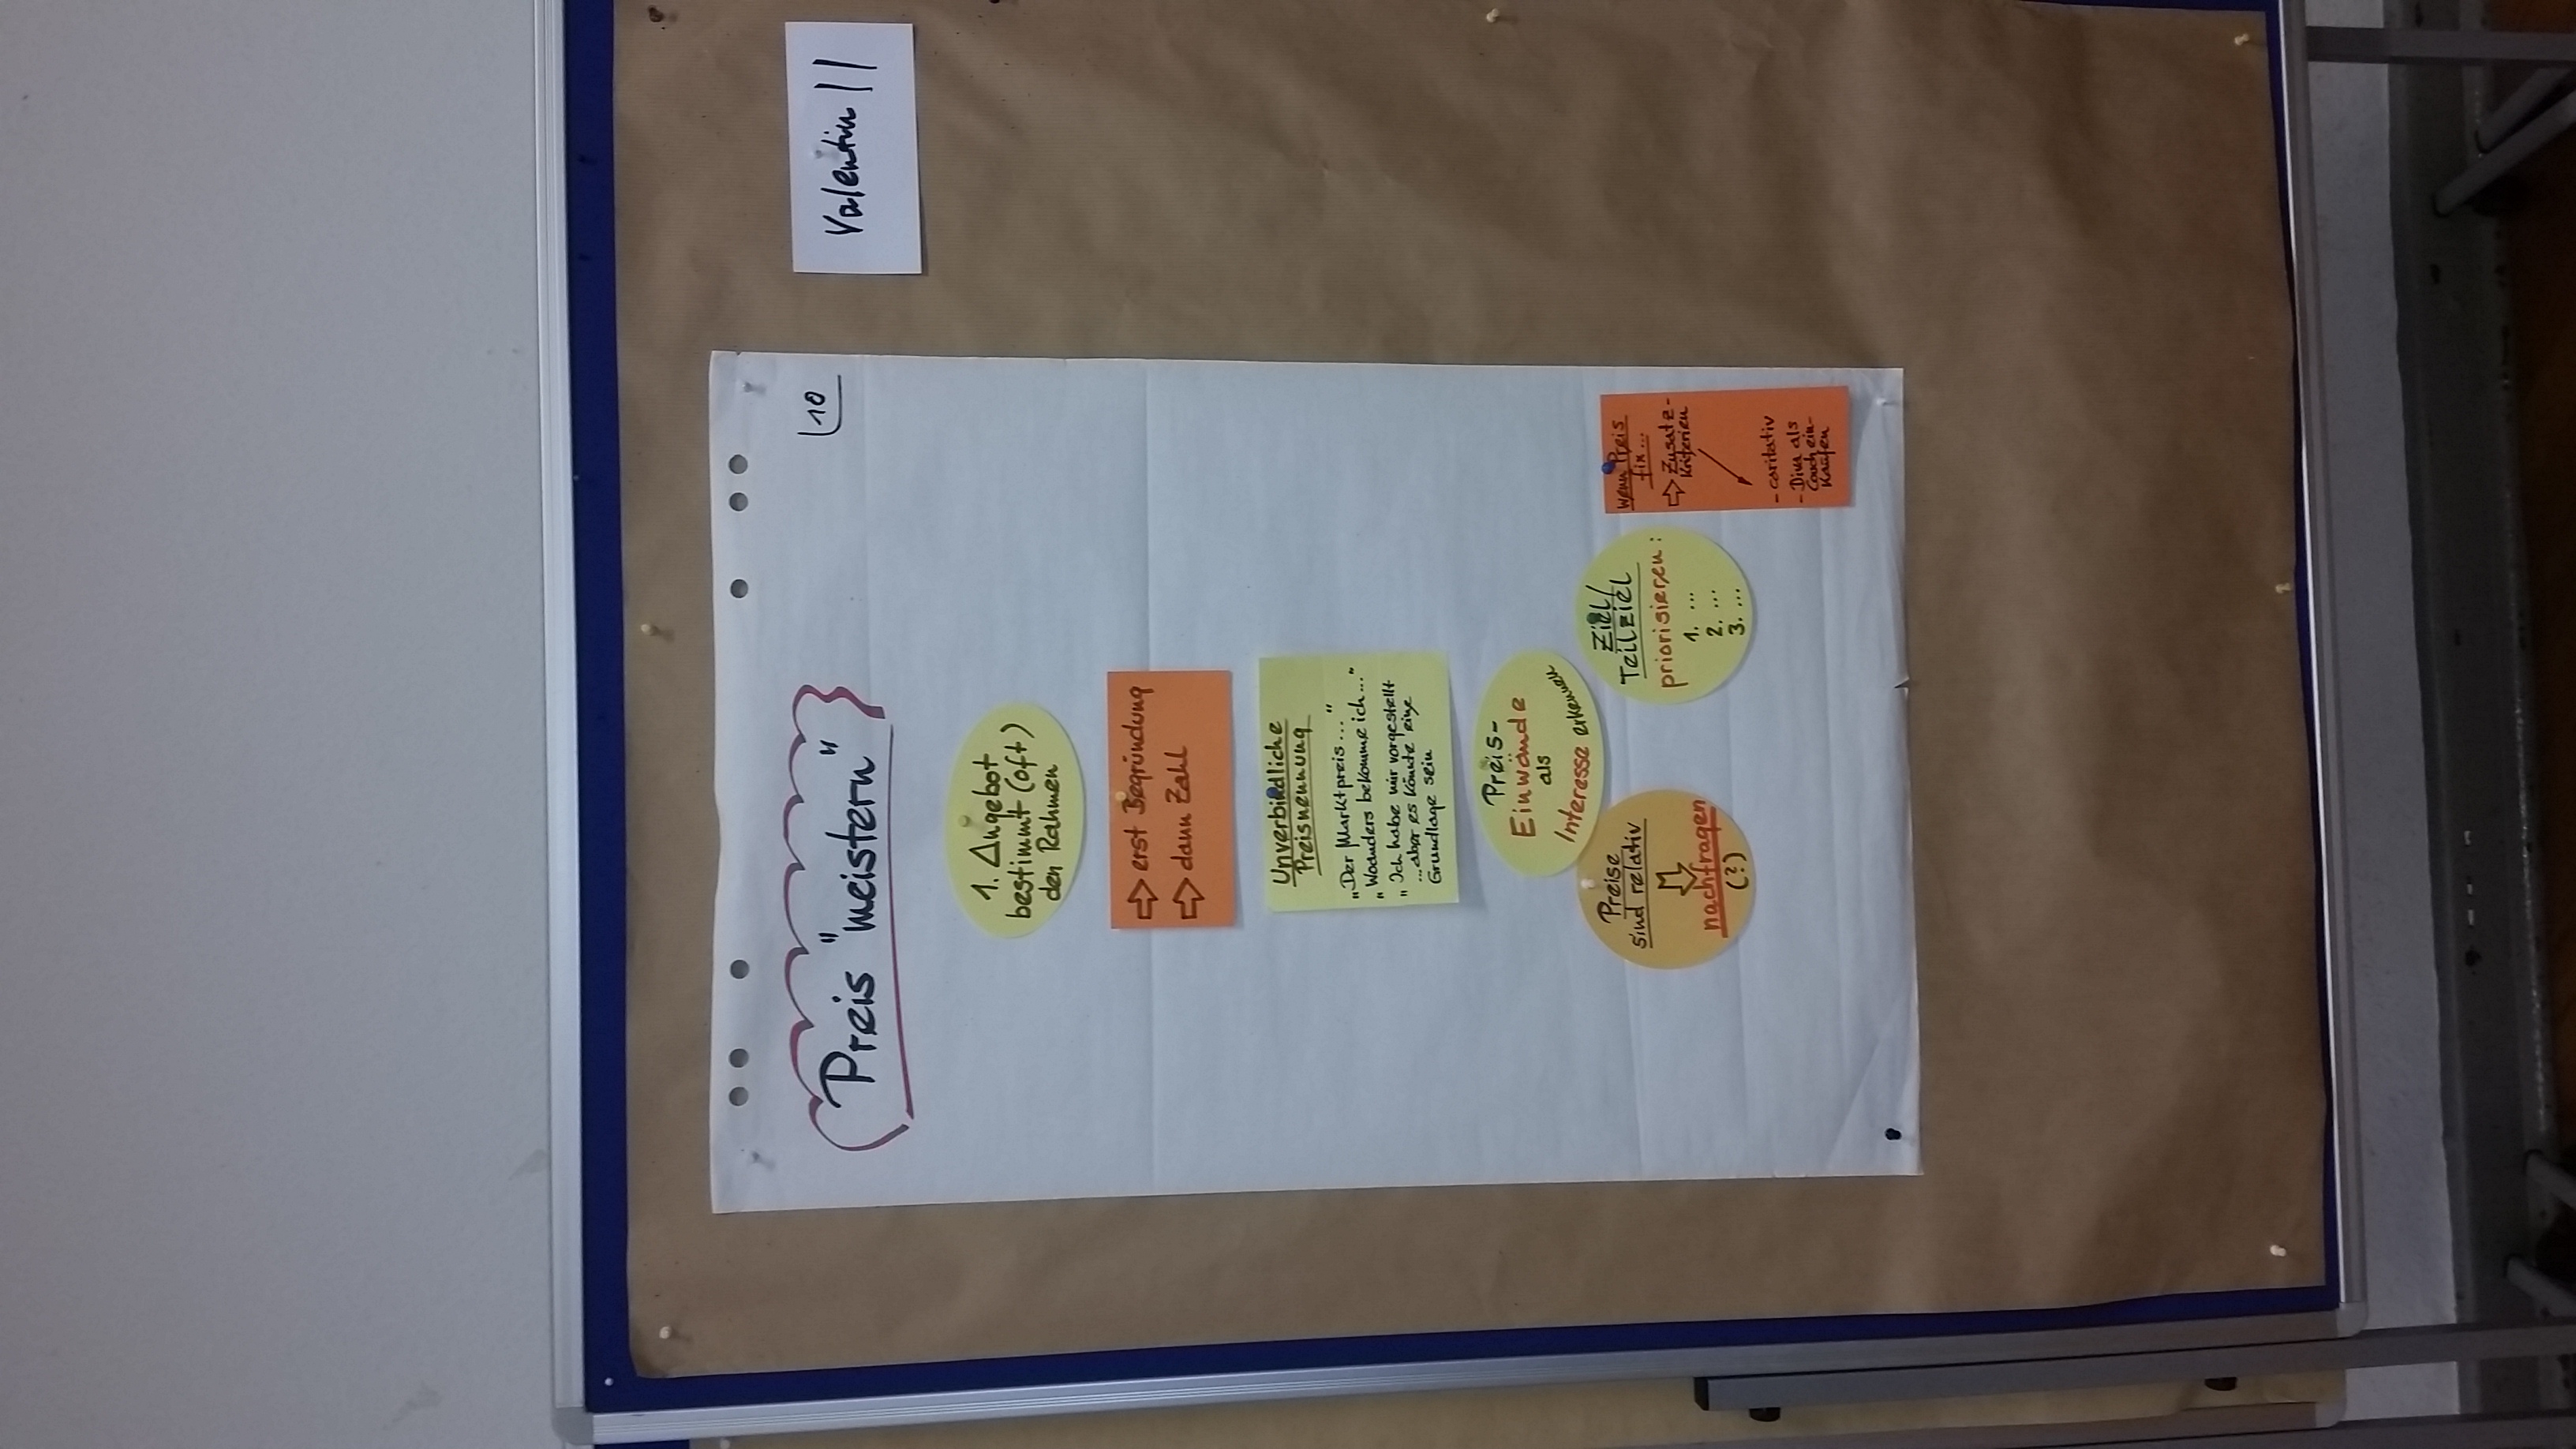 Preis "meistern"
10
Valentin ||
1. Angebot
bestimmt (oft)
den Rahmen
⇨ erst Begründung
⇨ dann Zahl
Unverbindliche
Preisnennung
„Der Marktpreis..."
„Woanders bekomme ich..."
„Ich habe mir vorgestellt
...aber es könnte eine
Grundlage sein
Preis-
Einwände
als
Interesse erkennen
Preise
sind relativ
⇩
nachfragen
(?)
Ziel/
Teilziel
priorisieren:
1. ...
2. ...
3. ...
wenn Preis
fix...
⇨ Zusatz-
kriterien
- caritativ
- Diva als
Couch ein-
kaufen